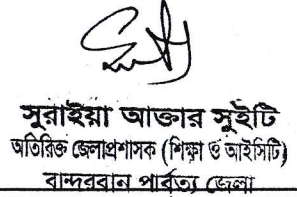 সুরাইয়া আক্তার সুইটি
অতিরিক্ত জেলাপ্রশাসক (শিক্ষা ও আইসিটি)
বান্দরবান পার্বত্য জেলা